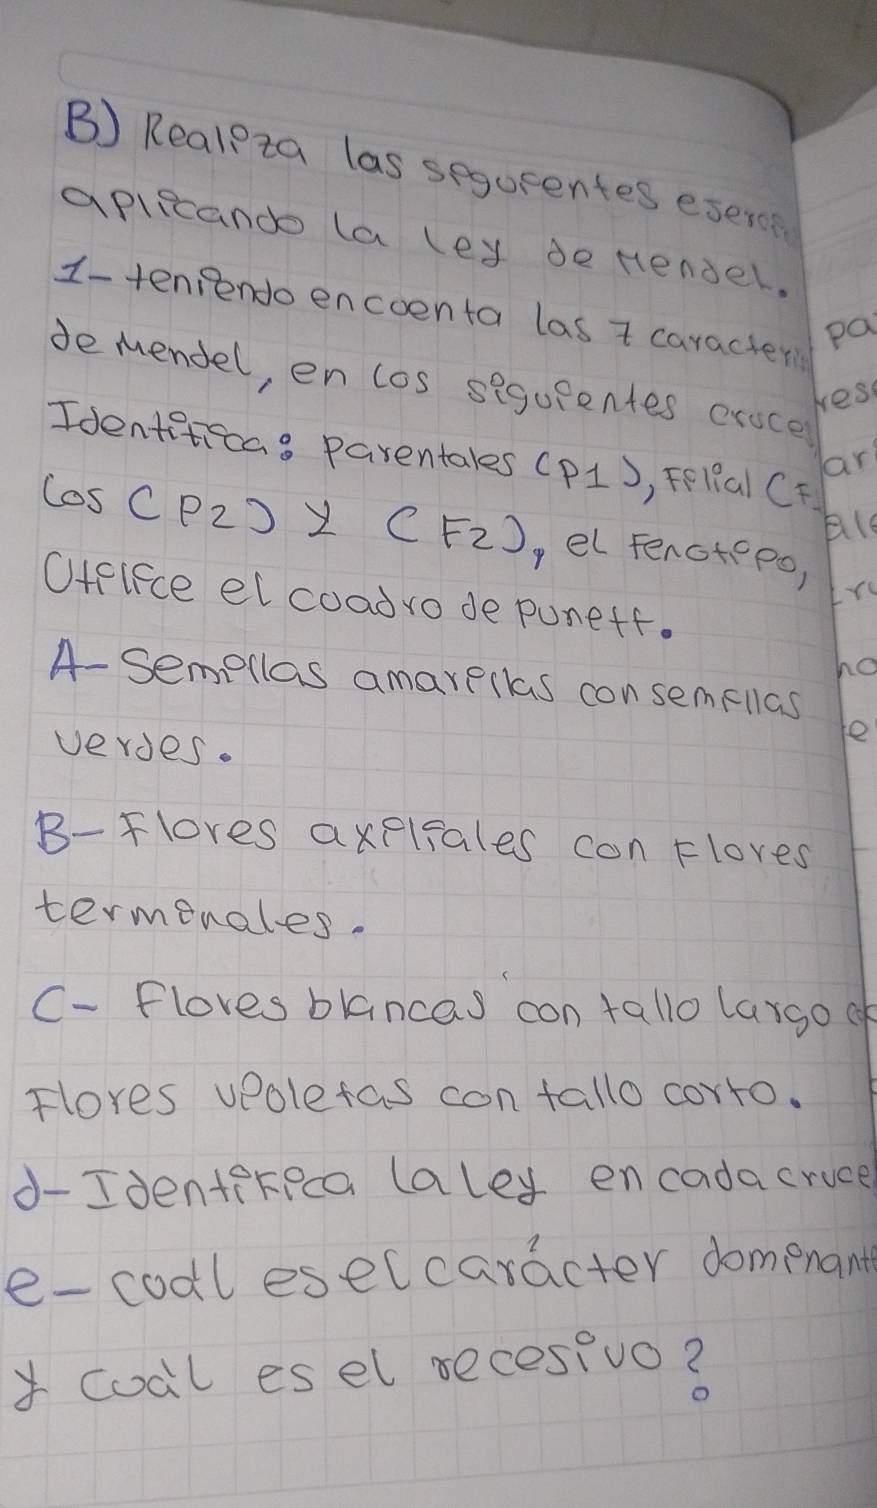 B) Realiza las siguientes
aplicando la ley de Mendel.
1- teniendo encuenta las 7
de Mendel, en los siguientes
Identifica: parentales (P1), Filial
los (P2) y (F2), el Fenotipo,
Utilice el cuadro de punett.
A- Semillas amarillas con semillas
verdes.
B- Flores axiliales con Flores
terminales.
C- Flores blancas con tallo largo
Flores violetas con tallo corto.
d- Identifica la ley en cada cruce
e- cuál es el carácter dominante
y cuàl es el recesivo?